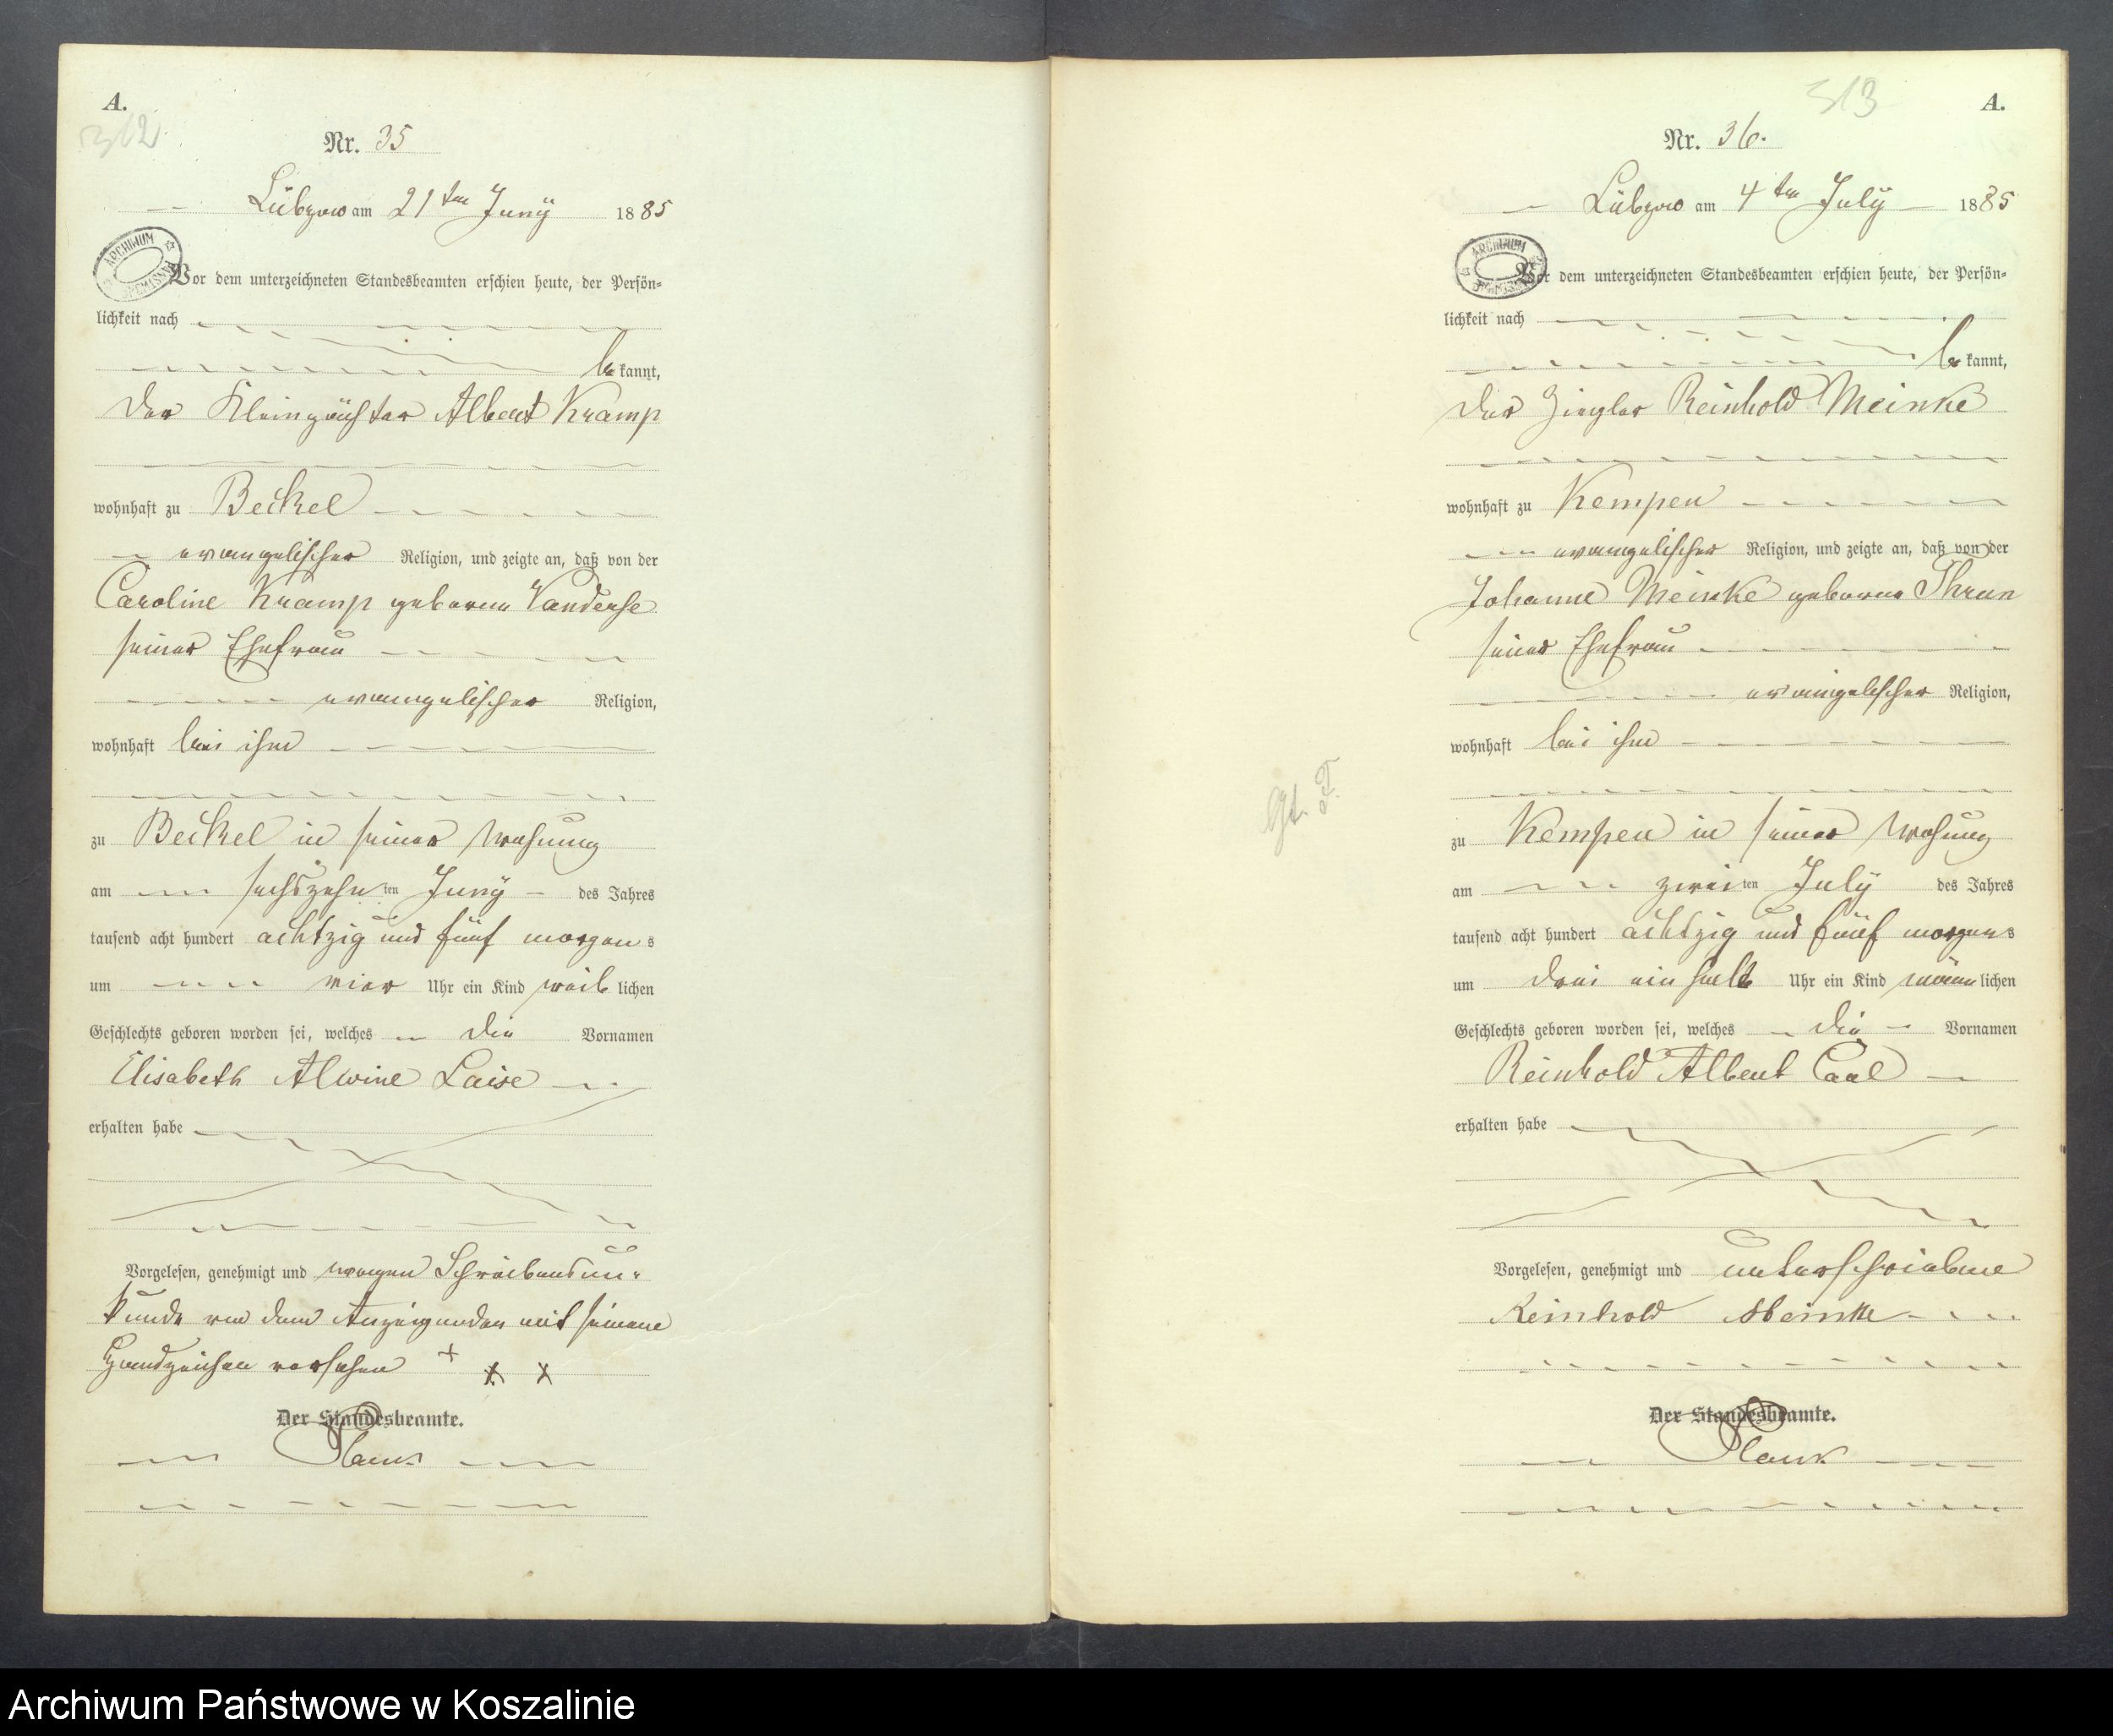 A.
312
Nr. 35
Lübzow am 21ten Juny 1885
ARCHIWUM
Vor dem unterzeichneten Standesbeamten erschien heute, der Persön-
lichkeit nach
be kannt,
der Kleinpächter Albert Kramp
wohnhaft zu Beckel
evangelischer Religion, und zeigte an, daß von der
Caroline Kramp geborene Vandersee
seiner Ehefrau
evangelischer Religion,
wohnhaft bei ihm
zu Beckel in seiner Wohnung
am sechszehn ten Juny des Jahres
tausend acht hundert achtzig und fünf morgens
um vier Uhr ein Kind weib lichen
Geschlechts geboren worden sei, welches die Vornamen
Elisabeth Alwine Luise
erhalten habe
Vorgelesen, genehmigt und wegen Schreibensun-
kunde von dem Anzeigenden mit seinem
Handzeichen versehen + x x
Der Standesbeamte.
313
A.
Nr. 36.
Lübzow am 4ten July 1885
ARCHIWUM
Vor dem unterzeichneten Standesbeamten erschien heute, der Persön-
lichkeit nach
be kannt,
der Ziegler Reinhold Meinke
wohnhaft zu Kempen
evangelischer Religion, und zeigte an, daß von der
Johanne Meinke geborene Thrun
seiner Ehefrau
evangelischer Religion,
wohnhaft bei ihm
zu Kempen in seiner Wohnung
am zwei ten July des Jahres
tausend acht hundert achtzig und fünf morgens
um drei ein halb Uhr ein Kind männ lichen
Geschlechts geboren worden sei, welches die Vornamen
Reinhold Albert Carl
erhalten habe
Vorgelesen, genehmigt und unterschrieben
Reinhold Meinke
Der Standesbeamte.
Archiwum Państwowe w Koszalinie